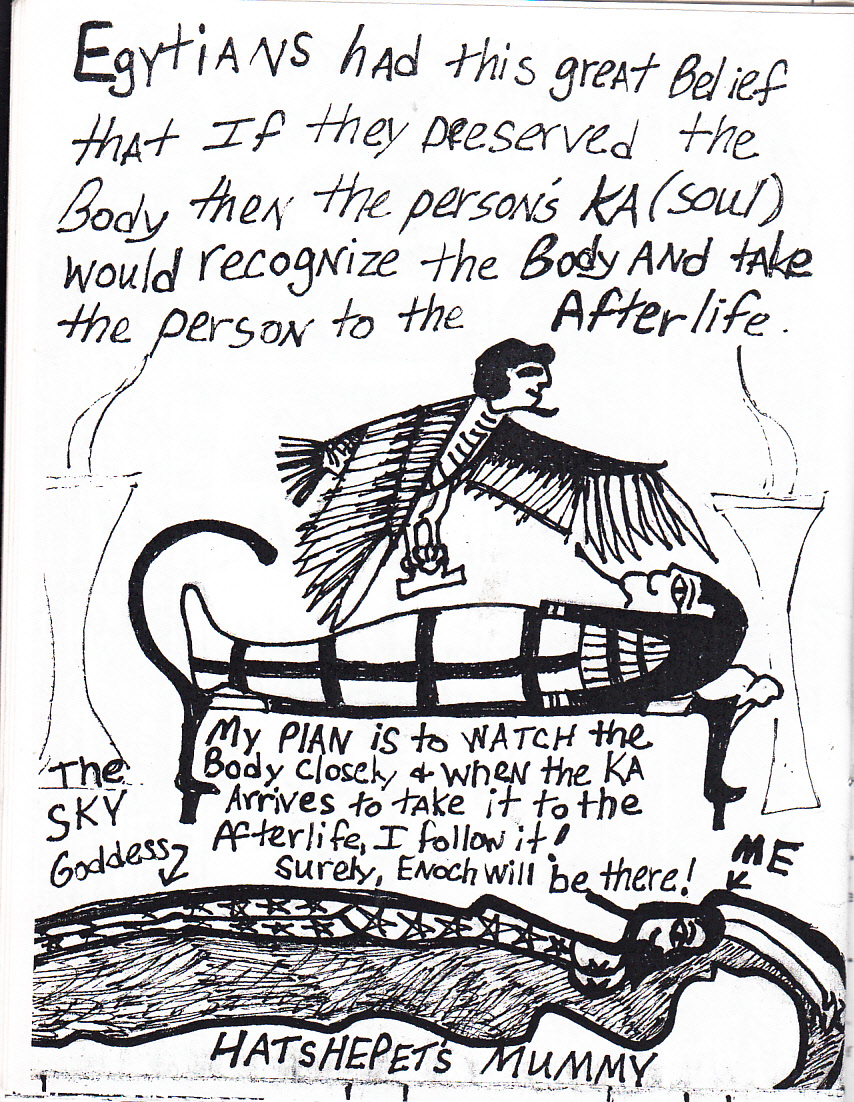 EgytiANS had this great Belief
that If they preserved the
Body then the person's KA (soul)
would recognize the Body AND take
the person to the Afterlife.
My PlAN is to WATCH the
Body Closely & WHEN the KA
Arrives to take it to the
Afterlife, I follow it!
Surely, Enoch will be there!
The
SKY
Goddess
ME
HATSHEPET'S MUMMY